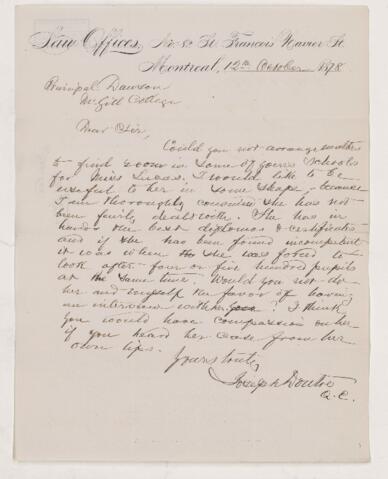 Law Offices, No 82 St. Francois Xavier St.
Montreal, 12th October 1878
Principal Dawson
McGill College
Dear Sir,
Could you not arrange matters
to find room in some of your schools
for Miss Lucas. I would like to be
useful to her in some shape, because
I am thoroughly convinced she has not
been fairly dealt with. She has in
hands the best diplomas & certificates
and if she has been found incompetent
it was when she was forced to
look after four or five hundred pupils
at the same time. Would you not do
her and myself the favor of having
an interview with her? I think
you would have compassion on her
if you heard her case from her
own lips.
Yours truly,
Joseph Doutre
Q.C.